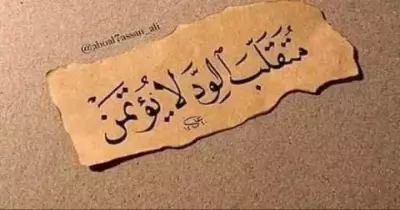 @aboal7assan_ali
مُتَقَلِّبَ الوِدِّ لا يُؤتَمَنْ